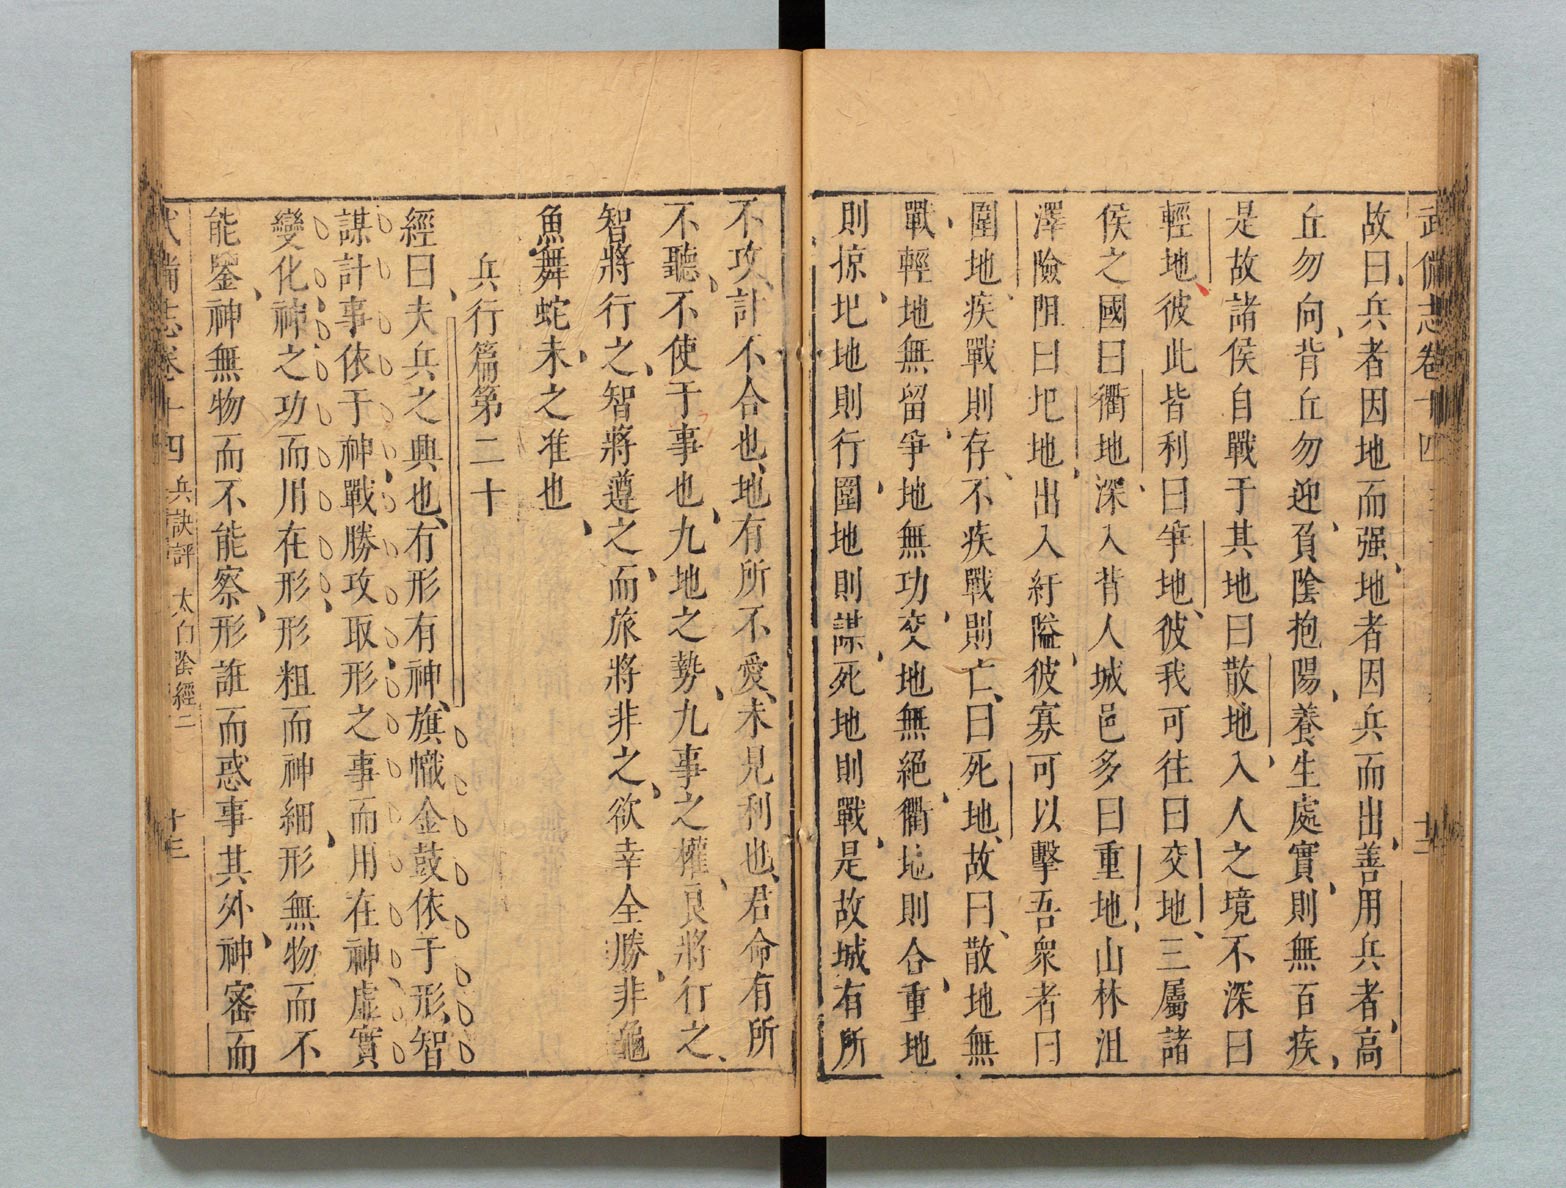 武備志卷十四
故曰兵者因地而强地者因兵而出善用兵者高
丘勿向背丘勿迎負陰抱陽養生處實則無百疾
是故諸侯自戰于其地曰散地入人之境不深曰
輕地彼此皆利曰爭地彼我可往曰交地三屬諸
侯之國曰衢地深入背人城邑多曰重地山林沮
澤險阻曰圯地出入紆隘彼寡可以擊吾衆者曰
圍地疾戰則存不疾戰則亡曰死地故曰散地無
戰輕地無留爭地無功交地無絕衢地則合重地
則掠圯地則行圍地則謀死地則戰是故城有所
不攻計不合也地有所不愛未見利也君命有所
不聽不使于事也九地之勢九事之權良將行之
智將行之智將遵之而旅將非之欲幸全勝非龜
魚舞蛇未之准也
兵行篇第二十
經曰夫兵之興也有形有神旗幟金鼓依于形智
謀計事依于神戰勝攻取形之事而用在神虛實
變化神之功而用在形形粗而神細形無物而不
能鑒神無物而不能察形誑而惑事其外神審而
武備志卷十四 兵訣評 太白陰經二 十三